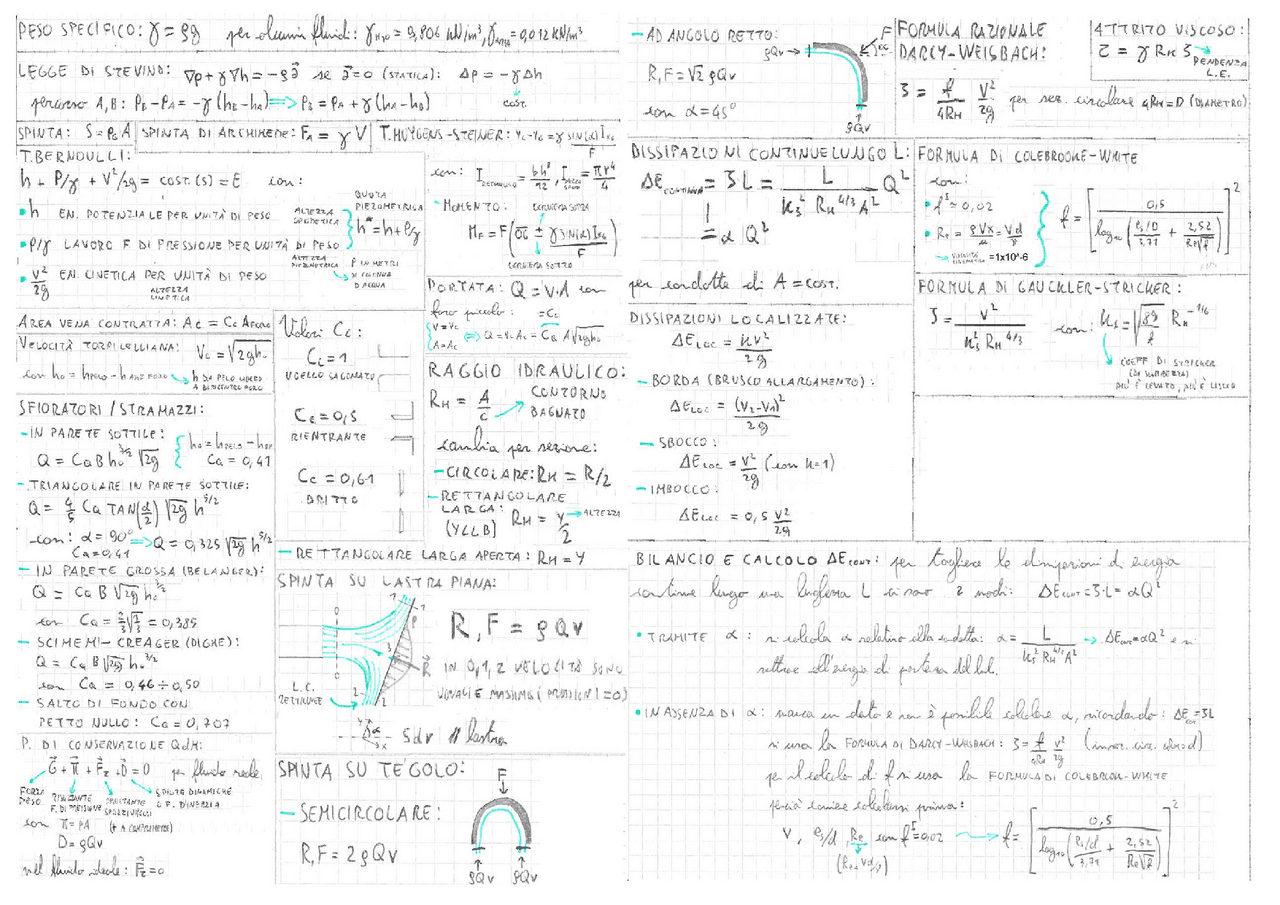 PESO SPECIFICO: γ = ρg per alcuni fluidi: γH2O = 9,806 kN/m³, γARIA = 0,012 kN/m³
LEGGE DI STEVINO: ∇p + γ∇h = -ρa⃗ se a⃗ = 0 (STATICA): Δp = -γΔh
COST.
percorso A, B: PB - PA = -γ(hB - hA) ⇒ PB = PA + γ(hA - hB)
SPINTA: S = PG A
SPINTA DI ARCHIMEDE: FA = γ V
T. HUYGENS-STEINER: yc - yG = γ sin(α) IxG / F
T. BERNOULLI:
h + P/γ + V²/2g = COST.(S) = E con:
• h EN. POTENZIALE PER UNITÀ DI PESO
ALTEZZA GEODETICA
QUOTA PIEZOMETRICA
h* = h + P/γ
• P/γ LAVORO F. DI PRESSIONE PER UNITÀ DI PESO
ALTEZZA PIEZOMETRICA
P IN METRI
X COLONNA
D'ACQUA
• V²/2g EN. CINETICA PER UNITÀ DI PESO
ALTEZZA CINETICA
con: I RETTANGOLO = bh³/12, I = πr⁴/4
- MOMENTO:
CERNIERA SOPRA
MF = F(OG ± γ sin(α) IxG / F)
CERNIERA SOTTO
PORTATA: Q = V·A con
foro piccolo: = Cc
{V = Vc
A = Ac ⇔ Q = Vc Ac = CQ A √2gh0
AREA VENA CONTRATTA: Ac = Cc AFORO
VELOCITÀ TORRICELLIANA: Vc = √2gh0
con h0 = hPELO - hASSE FORO → h DA PELO LIBERO
A BARICENTRO FORO
Valori Cc:
Cc = 1
UGELLO SAGOMATO
Cc = 0,5
RIENTRANTE
Cc = 0,61
DRITTO
RAGGIO IDRAULICO:
RH = A/C → CONTORNO
BAGNATO
cambia per sezione:
- CIRCOLARE: RH = R/2
- RETTANGOLARE
LARGA: RH = Y/2 → ALTEZZA
(Y<<B)
- RETTANGOLARE LARGA APERTA: RH = Y
SFIORATORI / STRAMAZZI:
- IN PARETE SOTTILE:
Q = CQ B h0^3/2 √2g { h0 = hPELO -
CQ = 0,41
- TRIANGOLARE IN PARETE SOTTILE:
Q = 4/5 CQ TAN(α/2) √2g h^5/2
con: α = 90° ⇒ Q = 0,325 √2g h^5/2
CQ = 0,41
- IN PARETE GROSSA (BELANGER):
Q = CQ B √2g h0^3/2
con CQ = 2/3 √1/3 = 0,385
- SCIMEMI-CREAGER (DIGHE):
Q = CQ B √2g h0^3/2
con CQ = 0,46 ÷ 0,50
- SALTO DI FONDO CON
PETTO NULLO: CQ = 0,707
P. DI CONSERVAZIONE QdM:
G⃗ + Π⃗ + F⃗z + D⃗ = 0 per fluido reale
FORZA
PESO
RISULTANTE
F. DI PRESSIONE
RISULTANTE
SFORZI VISCOSI
SPINTE DINAMICHE
O F. D'INERZIA
con Π = PA
D = ρQv
nel fluido ideale: F⃗z = 0
SPINTA SU LASTRA PIANA:
0 0 1 1 2 2 R⃗
L.C.
R, F = ρQv
IN 0, 1, 2 VELOCITÀ SONO
UGUALI E MASSIME (PRESSIONI = 0)
Y α X
// lastra
SPINTA SU TEGOLO:
- SEMICIRCOLARE:
R, F = 2ρQv
F
ρQv ρQv
- AD ANGOLO RETTO:
R, F = √2 ρQv
con α = 45°
ρQv F α
ρQv
FORMULA RAZIONALE
DARCY-WEISBACH:
J = f/4RH V²/2g per sez. circolare 4RH = D (DIAMETRO)
ATTRITO VISCOSO:
τ = γ RH J → PENDENZA
L.E.
DISSIPAZIONI CONTINUE LUNGO L:
ΔE CONTINUA = JL = L / kS² RH^4/3 A² Q²
= α Q²
per condotte di A = COST.
FORMULA DI COLEBROOKE-WHITE
con:
• f^I = 0,02
• Re = ρVx/μ = Vd/ν
→ VISCOSITÀ CINEMATICA = 1x10^-6
f = [0,5 / log10(es/D / 3,71 + 2,52 / Re√f)]²
FORMULA DI GAUCKLER-STRICKER:
J = V² / kS² RH^4/3 con: kS = √8g/f RH^-1/6
COEFF DI STRICKER
(DI SCABREZZA)
PIÙ È ELEVATO, PIÙ È LISCIO
DISSIPAZIONI LOCALIZZATE:
ΔELOC = kv²/2g
- BORDA (BRUSCO ALLARGAMENTO):
ΔELOC = (V2-V1)²/2g
- SBOCCO:
ΔELOC = V²/2g (con k=1)
- IMBOCCO:
ΔELOC = 0,5 V²/2g
BILANCIO E CALCOLO ΔECONT: per togliere le dispersioni di energia
continue lungo una lunghezza L ci sono 2 modi: ΔECONT = J·L = αQ²
• TRAMITE α: si calcola α relativo alla condotta: α = L / kS² RH^4/3 A² → ΔECONT = αQ² e si
sottrae all'energia di partenza del bil.
• IN ASSENZA DI α: manca un dato e non è possibile calcolare α, ricordando: ΔECONT = JL
si usa la FORMULA DI DARCY-WEISBACH: J = f/4RH V²/2g (in sez. circ. 4RH=d)
per il calcolo di f si usa la FORMULA DI COLEBROOK-WHITE
perciò conviene calcolarsi prima:
V, es/d, Re con f^I = 0,02 → f = [0,5 / log10(es/d / 3,71 + 2,52 / Re√f)]²
(Re = Vd/ν)